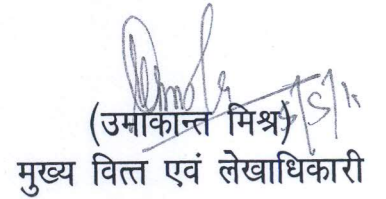 (उमाकान्त मिश्र)
मुख्य वित्त एवं लेखाधिकारी